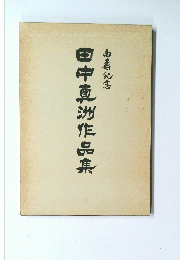 白寿記念
田中真洲作品集